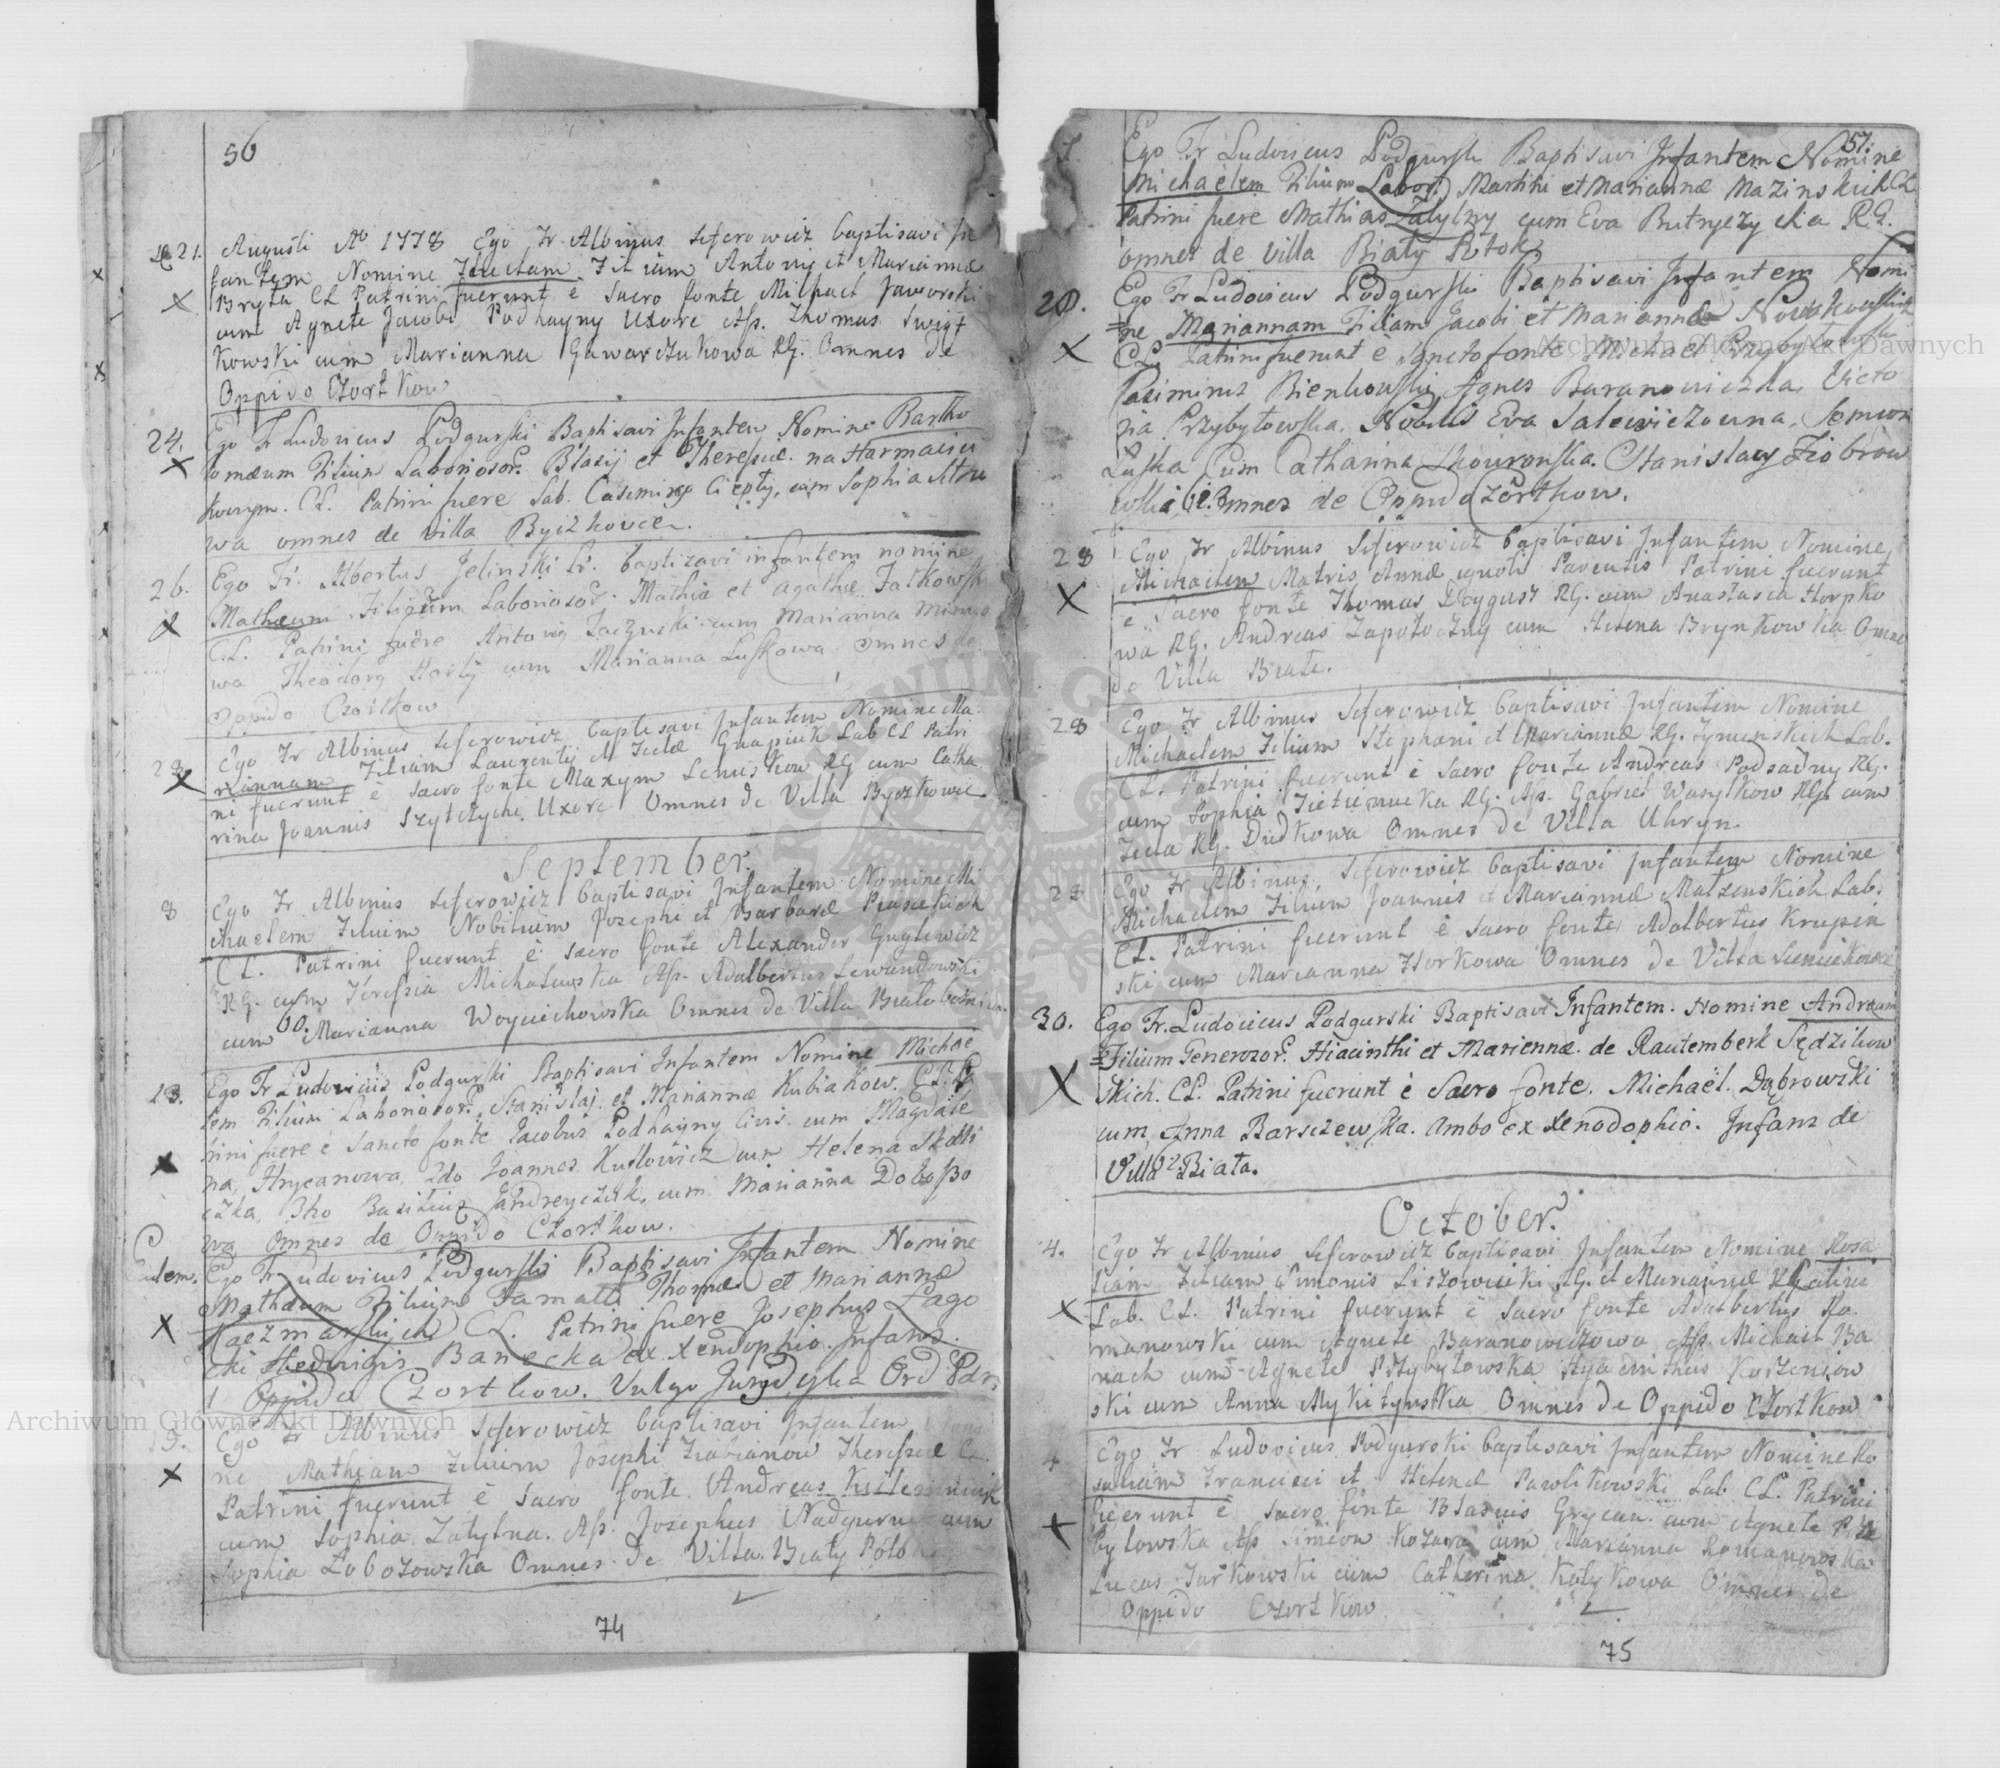 56
21. Augusti Aº 1778 Ego Fr Albinus Seferowicz baptisavi In
fantem Nomine Theclam Filiam Antonij et Mariannæ
Bryła CL Patrini fuerunt è Sacro fonte Michael Jaworski
cum Agnete Jacobi Podhayny Uxore Aſs. Thomas Swigt
kowski cum Marianna Gawarczukowa RG. Omnes de
Oppido Czortkow
24. Ego Fr Ludovicus Podgurski Baptisavi Infantem Nomine Bartho
lomæum Filium Laboriosor. Blasij et Theresiæ na Harmaciu
CL. Patrini fuere Lab. Casimirg Ciepły, cum Sophia
wa omnes de villa Byczkovce.
26. Ego Fr. Albertus Jelinski baptizavi infantem nomine
Mathæum Filium Laboriosor: Mathiæ et Agathæ Falkowsk
C.L. Patrini fuere Antonig Zaczynski cum Marianna
wa Theodorg Horty cum Marianna Luſkowa omnes de
oppido Czortkow
28. Ego Fr Albinus Seferowicz baptisavi Infantem Nomine Ma
riannam Filiam Laurentij et Teclæ Lab CL Patri
ni fuerunt è Sacro fonte Maxym RG cum Catha
rina Joannis Uxore Omnes de Villa Byczkowce
September
8 Ego Fr Albinus Seferowicz baptisavi Infantem Nomine Mi
chaelem Filium Nobilium Josephi et Barbaræ
CL. Patrini fuerunt è Sacro fonte Alexander
RG. cum Teresia Michalewska Aſs. Adalbertus Lewandowski
cum Marianna Woyciechowska Omnes de Villa Białobożnica
13. Ego Fr Ludovicus Podgurski Baptisavi Infantem Nomine Michae
lem Filium Laboriosor. Stanislaj et Mariannæ Kubiakow. CL. P
trini fuere è Sancto fonte Jacobus Podhayny Civis cum Magdale
na, Hrycanowa, 2do Joannes Kudlowicz cum Helena
czka, 3tio Basilius Jandreyczuk, cum Marianna
wa Omnes de Oppido Czortkow.
Eadem. Ego Fr Ludovicus Podgurski Baptisavi Infantem Nomine
Mathæum Filium Famati Thomæ et Mariannæ
Kaczmarſkich CL. Patrini fuere Josephus Lago
cki Hedvigis Banecka ex Xenodophio. Infans
Oppido Czortkow. Vulgo Jurydyka Ord Præ
13. Ego Fr Albinus Seferowicz baptisavi Infantem
ne Mathiam Filium Josephi Theresiæ
Patrini fuerunt è Sacro fonte Andreas
cum Sophia Zalytna. Aſs. Josephus cum
Sophia Łobozowska Omnes de Villa Biały Poto
74
57.
Ego Fr Ludovicus Podgurſki Baptisavi Infantem Nomine
Michaelem Filium Labor Martini et Mariannæ Mazinskich CL
Patrini fuere Mathias Zalytny cum Eva Butryczycka R.G.
omnes de villa Biały Potok
20. Ego Fr Ludovicus Podgurſki Baptisavi Infantem Nomi
ne Mariannam Filiam Jacobi et Mariannæ Nowakowſkich
CL. Patrini fuerunt è Sancto fonte Michael Przybyłowski
Casimirus Bienkowski, Agnes Baranowiczka, Victo
ria Przybyłowska, Nobilis Eva Salewiczowna, Semion
Luſka Cum Catharina Skouronſka. Stanislaus
Omnes de Oppido Czortkow.
28 Ego Fr Albinus Seferowicz baptisavi Infantem Nomine
Michaelem Matris Annæ ignoti Parentis Patrini fuerunt
è Sacro fonte Thomas RG. cum Anastasia Horpko
wa RG. Andreas Zapotoczny cum Helena Brynkowska Omnes
de Villa Białe.
28 Ego Fr Albinus Seferowicz baptisavi Infantem Nomine
Michaelem Filium Stephani et Mariannæ RG. Lab.
CL. Patrini fuerunt è Sacro fonte Andreas Podsadny RG.
cum Sophia RG. Aſs. Gabriel Wasylkow RG cum
Tecla RG. Dudkowa Omnes de Villa Uhryn
28 Ego Fr Albinus Seferowicz baptisavi Infantem Nomine
Michaelem Filium Joannis et Mariannæ Lab.
CL. Patrini fuerunt è Sacro fonte Adalbertus Krupin
ski cum Marianna Omnes de Villa
30. Ego Fr. Ludovicus Podgurski Baptisavi Infantem. Nomine Andream
Filium Generozor. Hiacinthi et Mariennæ de Rautemberk Sędzikow
skich. CL. Patrini fuerunt è Sacro fonte. Michaël Dąbrowski
cum Anna Barsczewſka. Ambo ex Xenodophio. Infans de
Villa Biała.
October.
4. Ego Fr Albinus Seferowicz baptisavi Infantem Nomine Rosa
liam Filiam Simonis RG. et Mariannæ
Lab. CL. Patrini fuerunt è Sacro fonte Adalbertus Ro
manowski cum Agnete Baranowiczowa Aſs. Michael Ba
nach cum Agnete Przybyłowska Hyacinthus
ski cum Anna Mykitynska Omnes de Oppido Czortkow
4 Ego Fr Ludovicus Podgurski baptisavi Infantem Nomine Ro
saliam Francisci et Helenæ Pawlikowski Lab CL. Patrini
fuerunt è Sacro fonte Blasius Grycan cum Agnete Przy
byłowska Aſs Simeon Kozara cum Marianna Romanowska
Lucas Jarkowski cum Catherina Kołykowa Omnes de
Oppido Czortkow
75
Archiwum Główne Akt Dawnych
Archiwum Główne Akt Dawnych